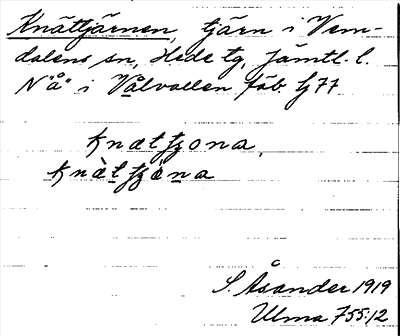 Knättjärnen, tjärn i Vem-
dalens sn, Hede tg, Jämtl. l.
N "å" i Vålvallen fäb fj 77
knætjona,
knætjæna
S. Åsander 1919
Ulma 755:12